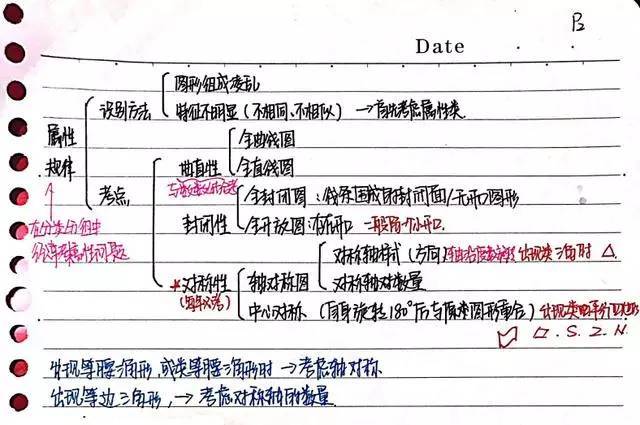 Date
图形组成凌乱
识别方法
特征不明显(不相同、不相似) → 首先考虑属性类
属性
规律
全曲线图
曲直性
全直线图
考点
全封闭图:线条围成闭封闭面/无开口图形
封闭性
全开放图:有开口 一般留个小开口.
在分类分组中
经常考属性问题
对称轴样式(方向) 出现类三角时 △.
*对称性
(每年必考)
轴对称图
对称轴对数量
中心对称 (自身旋转180°后与原来图形重合)
▱ . S . Z . N .
出现等腰三角形,或类等腰三角形时 → 考虑轴对称
出现等边三角形, → 考虑对称轴的数量